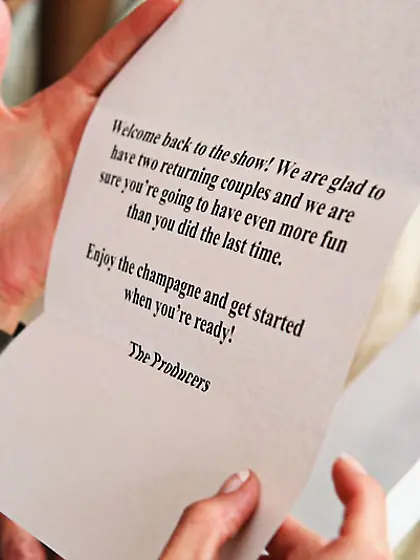 Welcome back to the show! We are glad to
have two returning couples and we are
sure you're going to have even more fun
than you did the last time.
Enjoy the champagne and get started
when you're ready!
The Producers